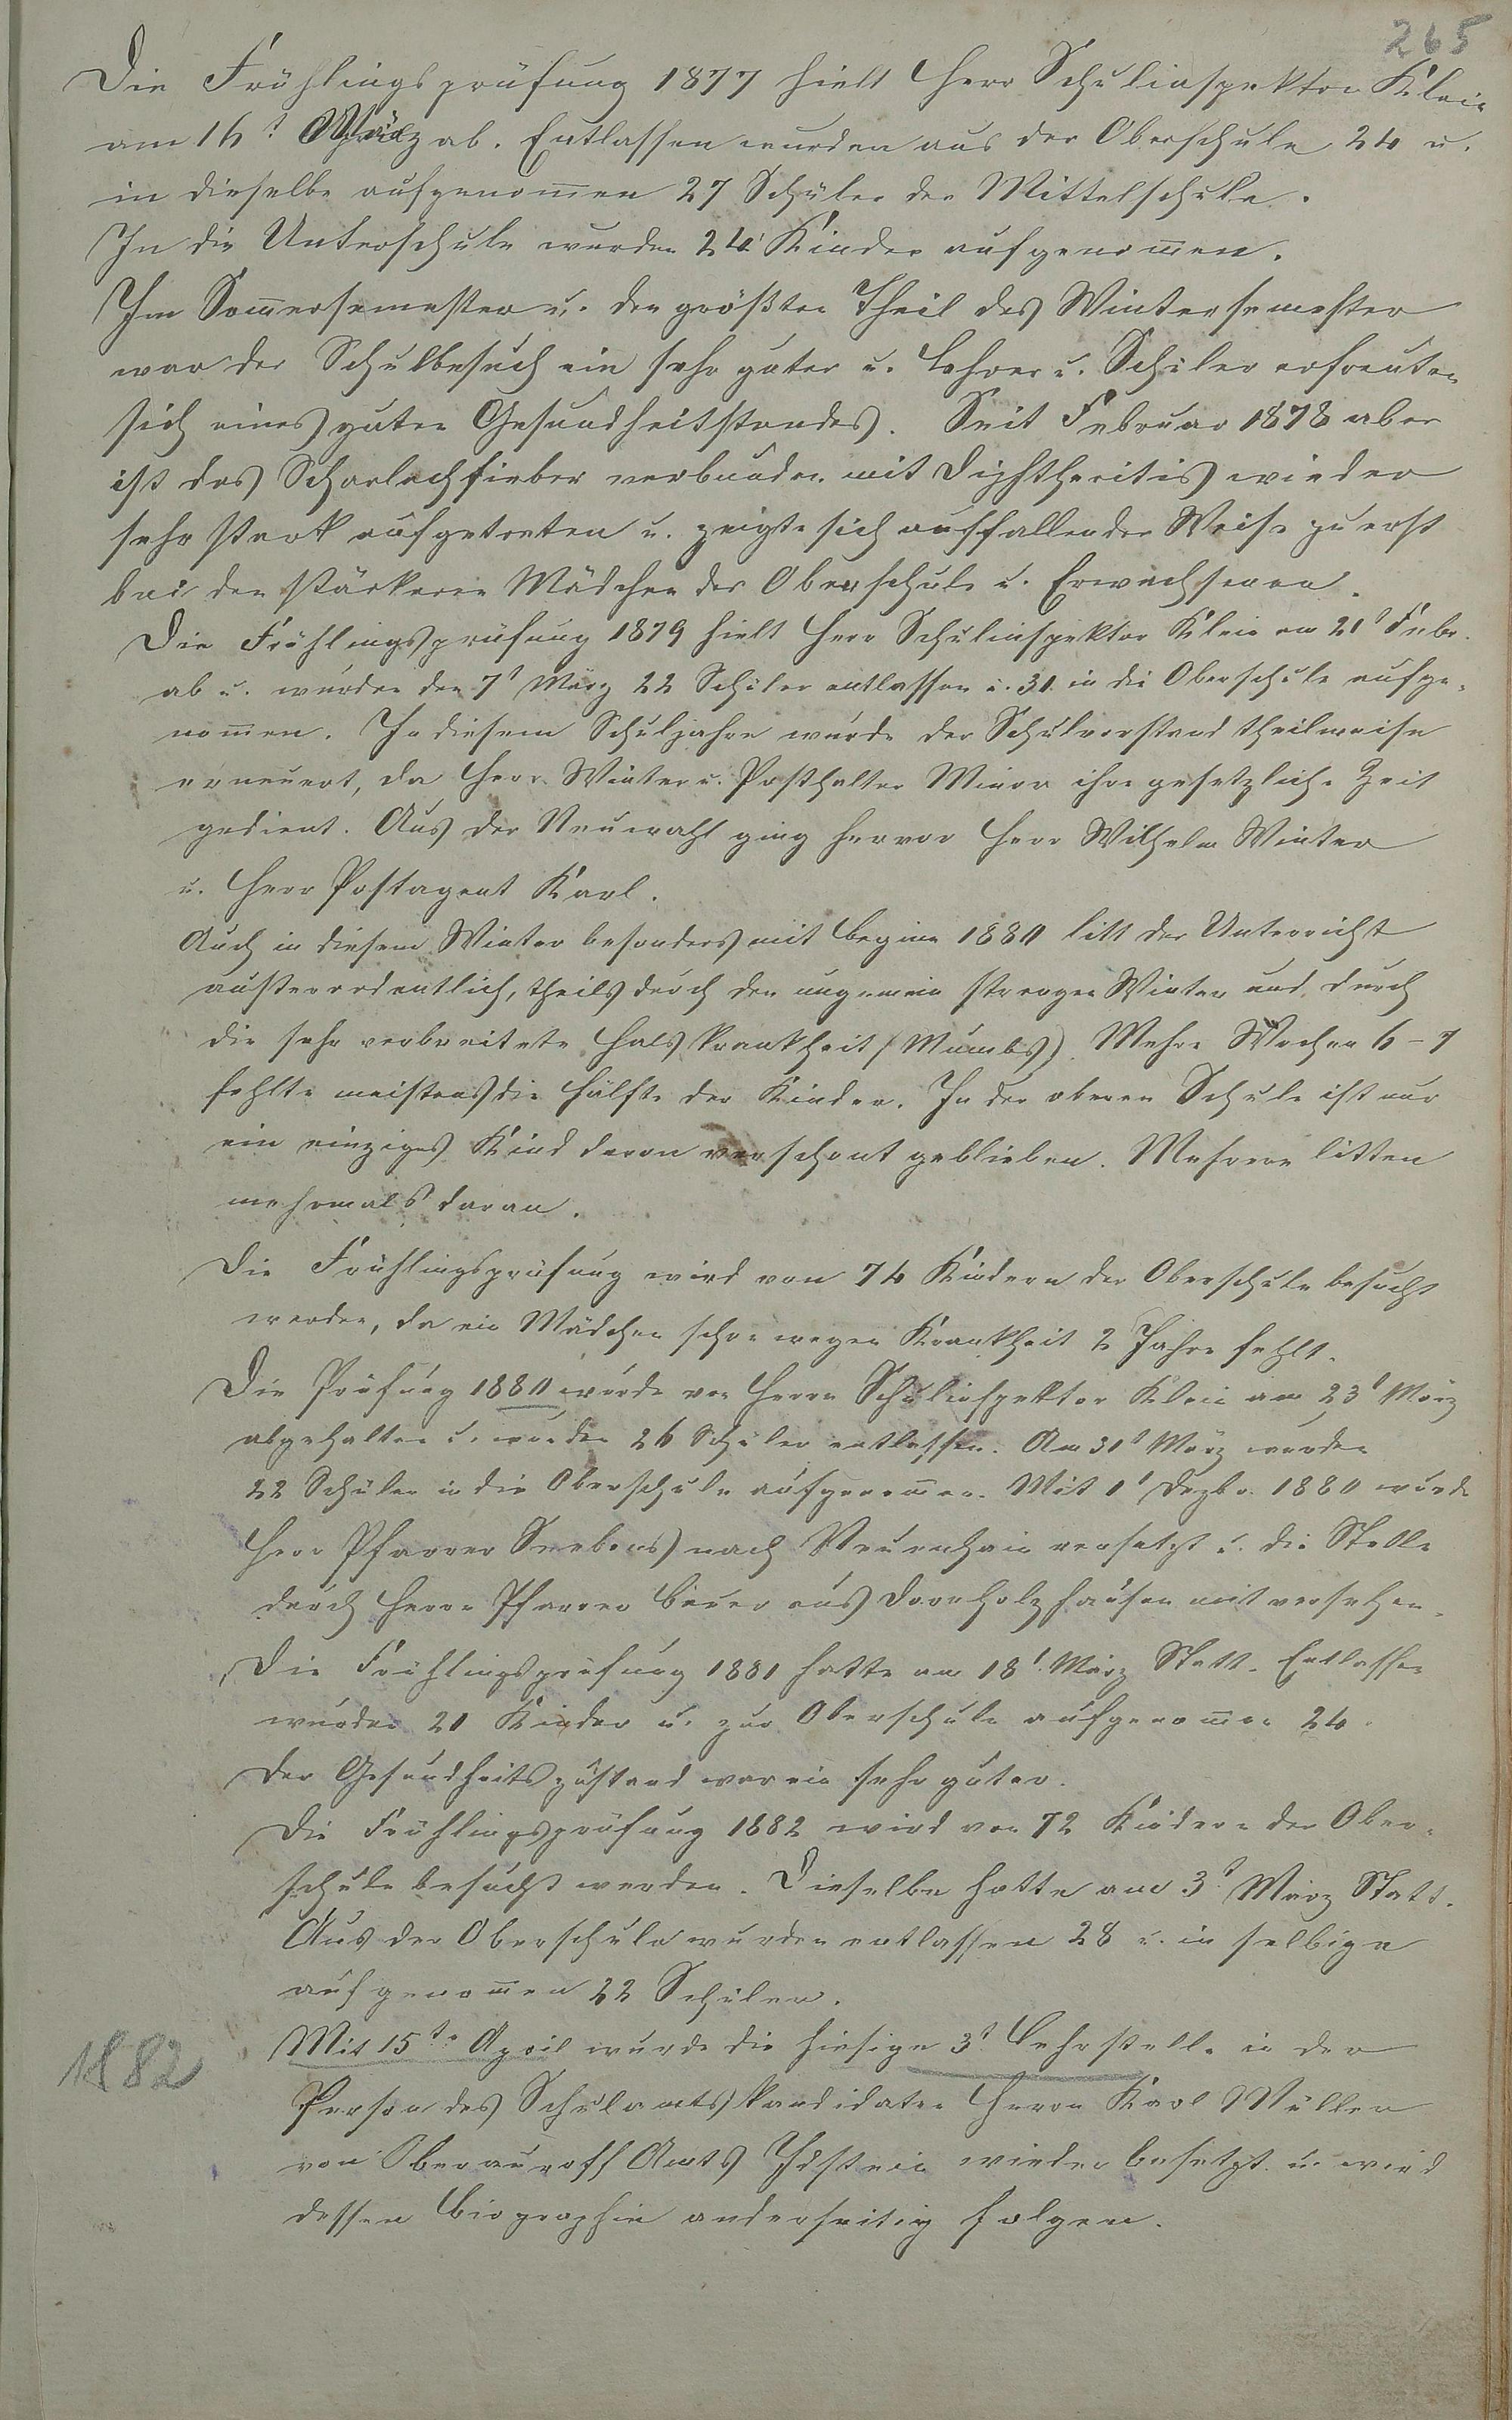 265
Die Frühlingsprüfung 1877 hielt Herr Schulinspektor Klein
am 16t März ab. Entlassen wurden aus der Oberschule 24 u.
in dieselbe aufgenommen 27 Schüler der Mittelschule.
In die Unterschule wurden 24 Kinder aufgenommen.
Im Sommersemester u. den größten Theil des Wintersemester
war der Schulbesuch ein sehr guter u. Lehrer u. Schüler erfreuten
sich eines guten Gesundheitstandes. Seit Februar 1878 aber
ist das Scharlachfieber verbunden mit Dightheritis wieder
sehr stark aufgetreten u. zeigte sich auffallender Weise zu erst
bei den stärkeren Mädchen der Oberschule u. Erwachsenen.
Die Frühlingsprüfung 1879 hielt Herr Schulinspektor Klein am 21t Febr.
ab u. wurden den 7t März 22 Schüler entlassen u. 31 in die Oberschule aufge-
nommen. In diesem Schuljahre wurde der Schulvorstand theilweise
erneuert, da Herr Winter u. Posthalter Minor ihre gesetzliche Zeit
gedient. Aus der Neuwahl ging hervor Herr Wilhelm Winter
u. Herr Postagent Karl.
Auch in diesem Winter besonders mit Beginn 1880 litt der Unterricht
außerordentlich, theils durch den ungemein strengen Winter und durch
die sehr verbreitete Halskrankheit (Mumbs). Mehre Wochen 6-7
fehlte meistens die Hälfte der Kinder. In der oberen Schule ist nur
ein einziges Kind davon verschont geblieben. Mehrere litten
mehrmals daran.
Die Frühlingsprüfung wird von 74 Kindern der Oberschule besucht
werden, da ein Mädchen schon wegen Krankheit 2 Jahre fehlt.
Die Prüfung 1880 wurde von Herrn Schulinspektor Klein am 23t März
abgehalten u. wurden 26 Schüler entlassen. Am 31t März wurden
22 Schüler in die Oberschule aufgenommen. Mit 1t Dezbr. 1880 wurde
Herr Pfarrer Seebens nach Neuenhain versetzt u. die Stelle
durch Herrn Pfarrer Bauer aus Dornholzhausen mit versehen.
Die Frühlingsprüfung 1881 hatte am 18t März Statt. Entlassen
wurden 21 Kinder u. zur Oberschule aufgenommen 24.
Der Gesundheitszustand war ein sehr guter.
Die Frühlingsprüfung 1882 wird von 72 Kindern der Ober-
schule besucht werden. Dieselbe hatte am 3t März Statt.
Aus der Oberschule wurden entlassen 28 u. in selbige
aufgenommen 22 Schüler.
1882
Mit 15ten April wurde die hiesige 3t Lehrstelle in der
Person des Schulamtskandidaten Herrn Karl Müller
von Oberauroff Amts Idstein wieder besetzt u. wird
dessen Biographie anderseitig folgen.